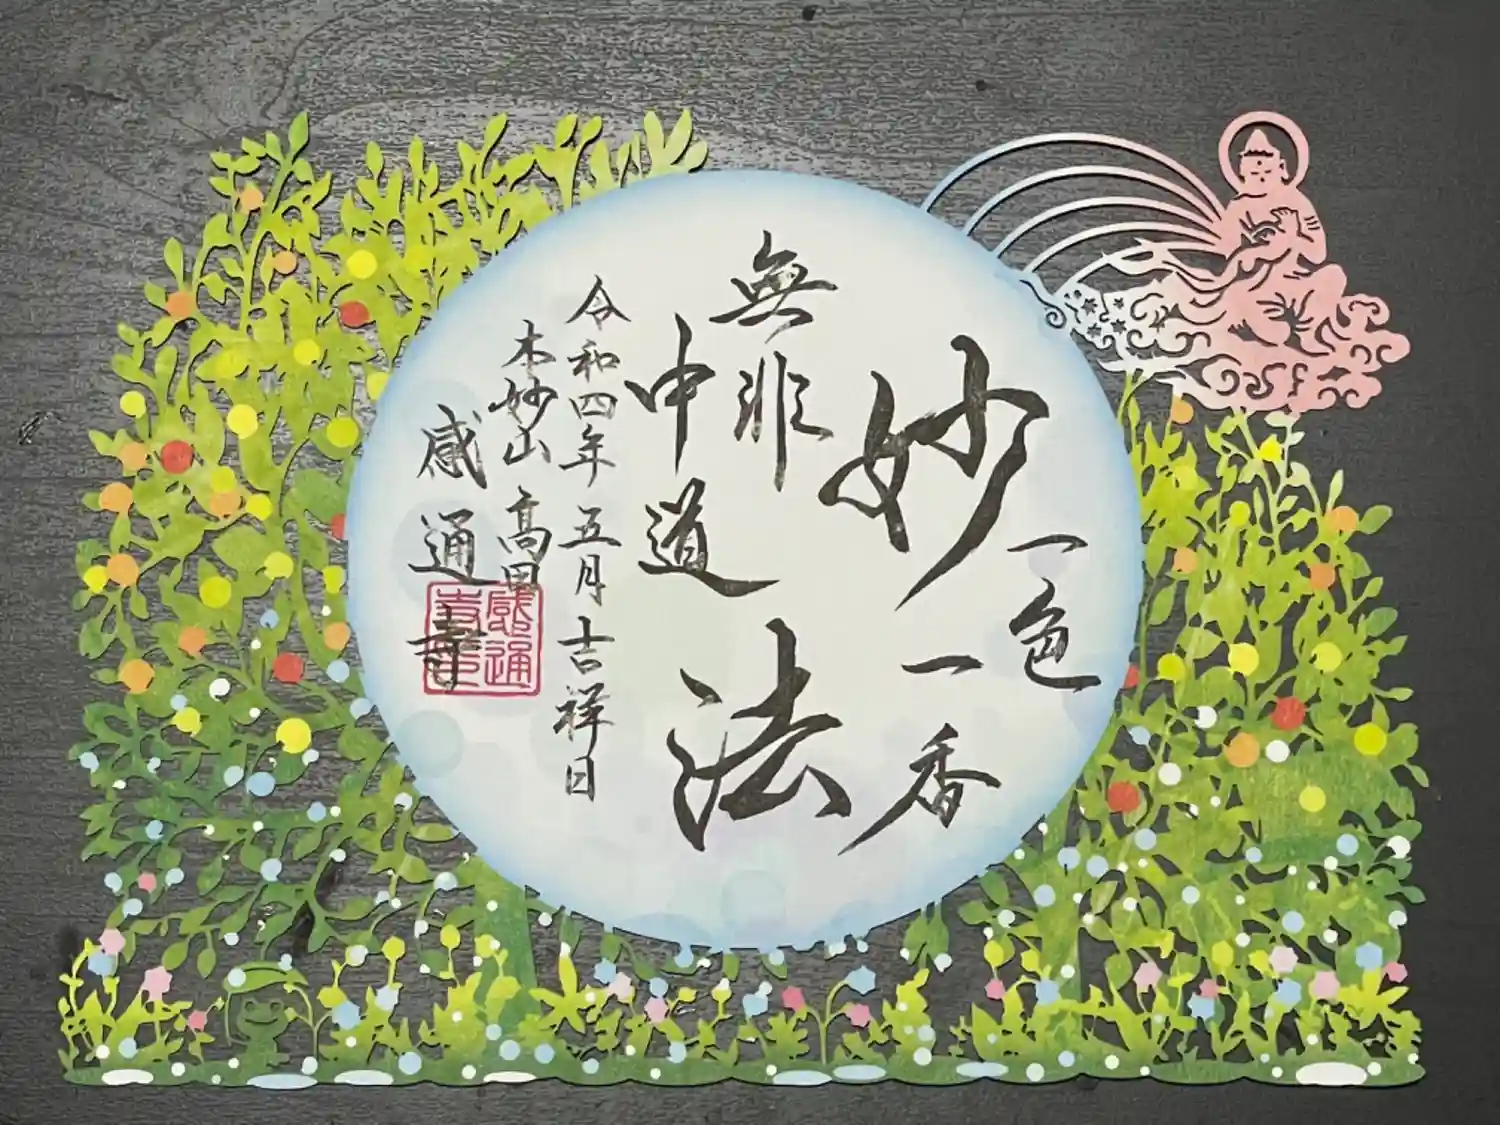 一色
一香
妙法
無非
中道
令和四年五月吉祥日
本妙山高田
感通寺
感通寺印